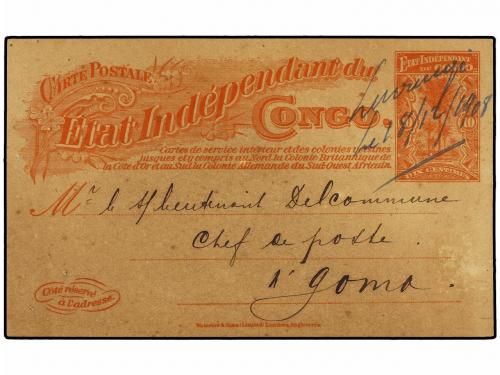 CARTE POSTALE
Etat Indépendant du
CONGO.
Cartes de service intérieur et des colonies voisines
jusques et y compris au Nord la Colonie Britannique de
la Côte d'Or, et au Sud la Colonie Allemande du Sud-Ouest Africain.
ETAT INDÉPENDANT
DU CONGO
10
DIX CENTIMES
le 8/12/1908
Mr le s/lieutenant Delcommune
Chef de poste
à Goma.
Côté réservé
à l'adresse.
Waterlow & Sons Limited, Londres, Angleterre.